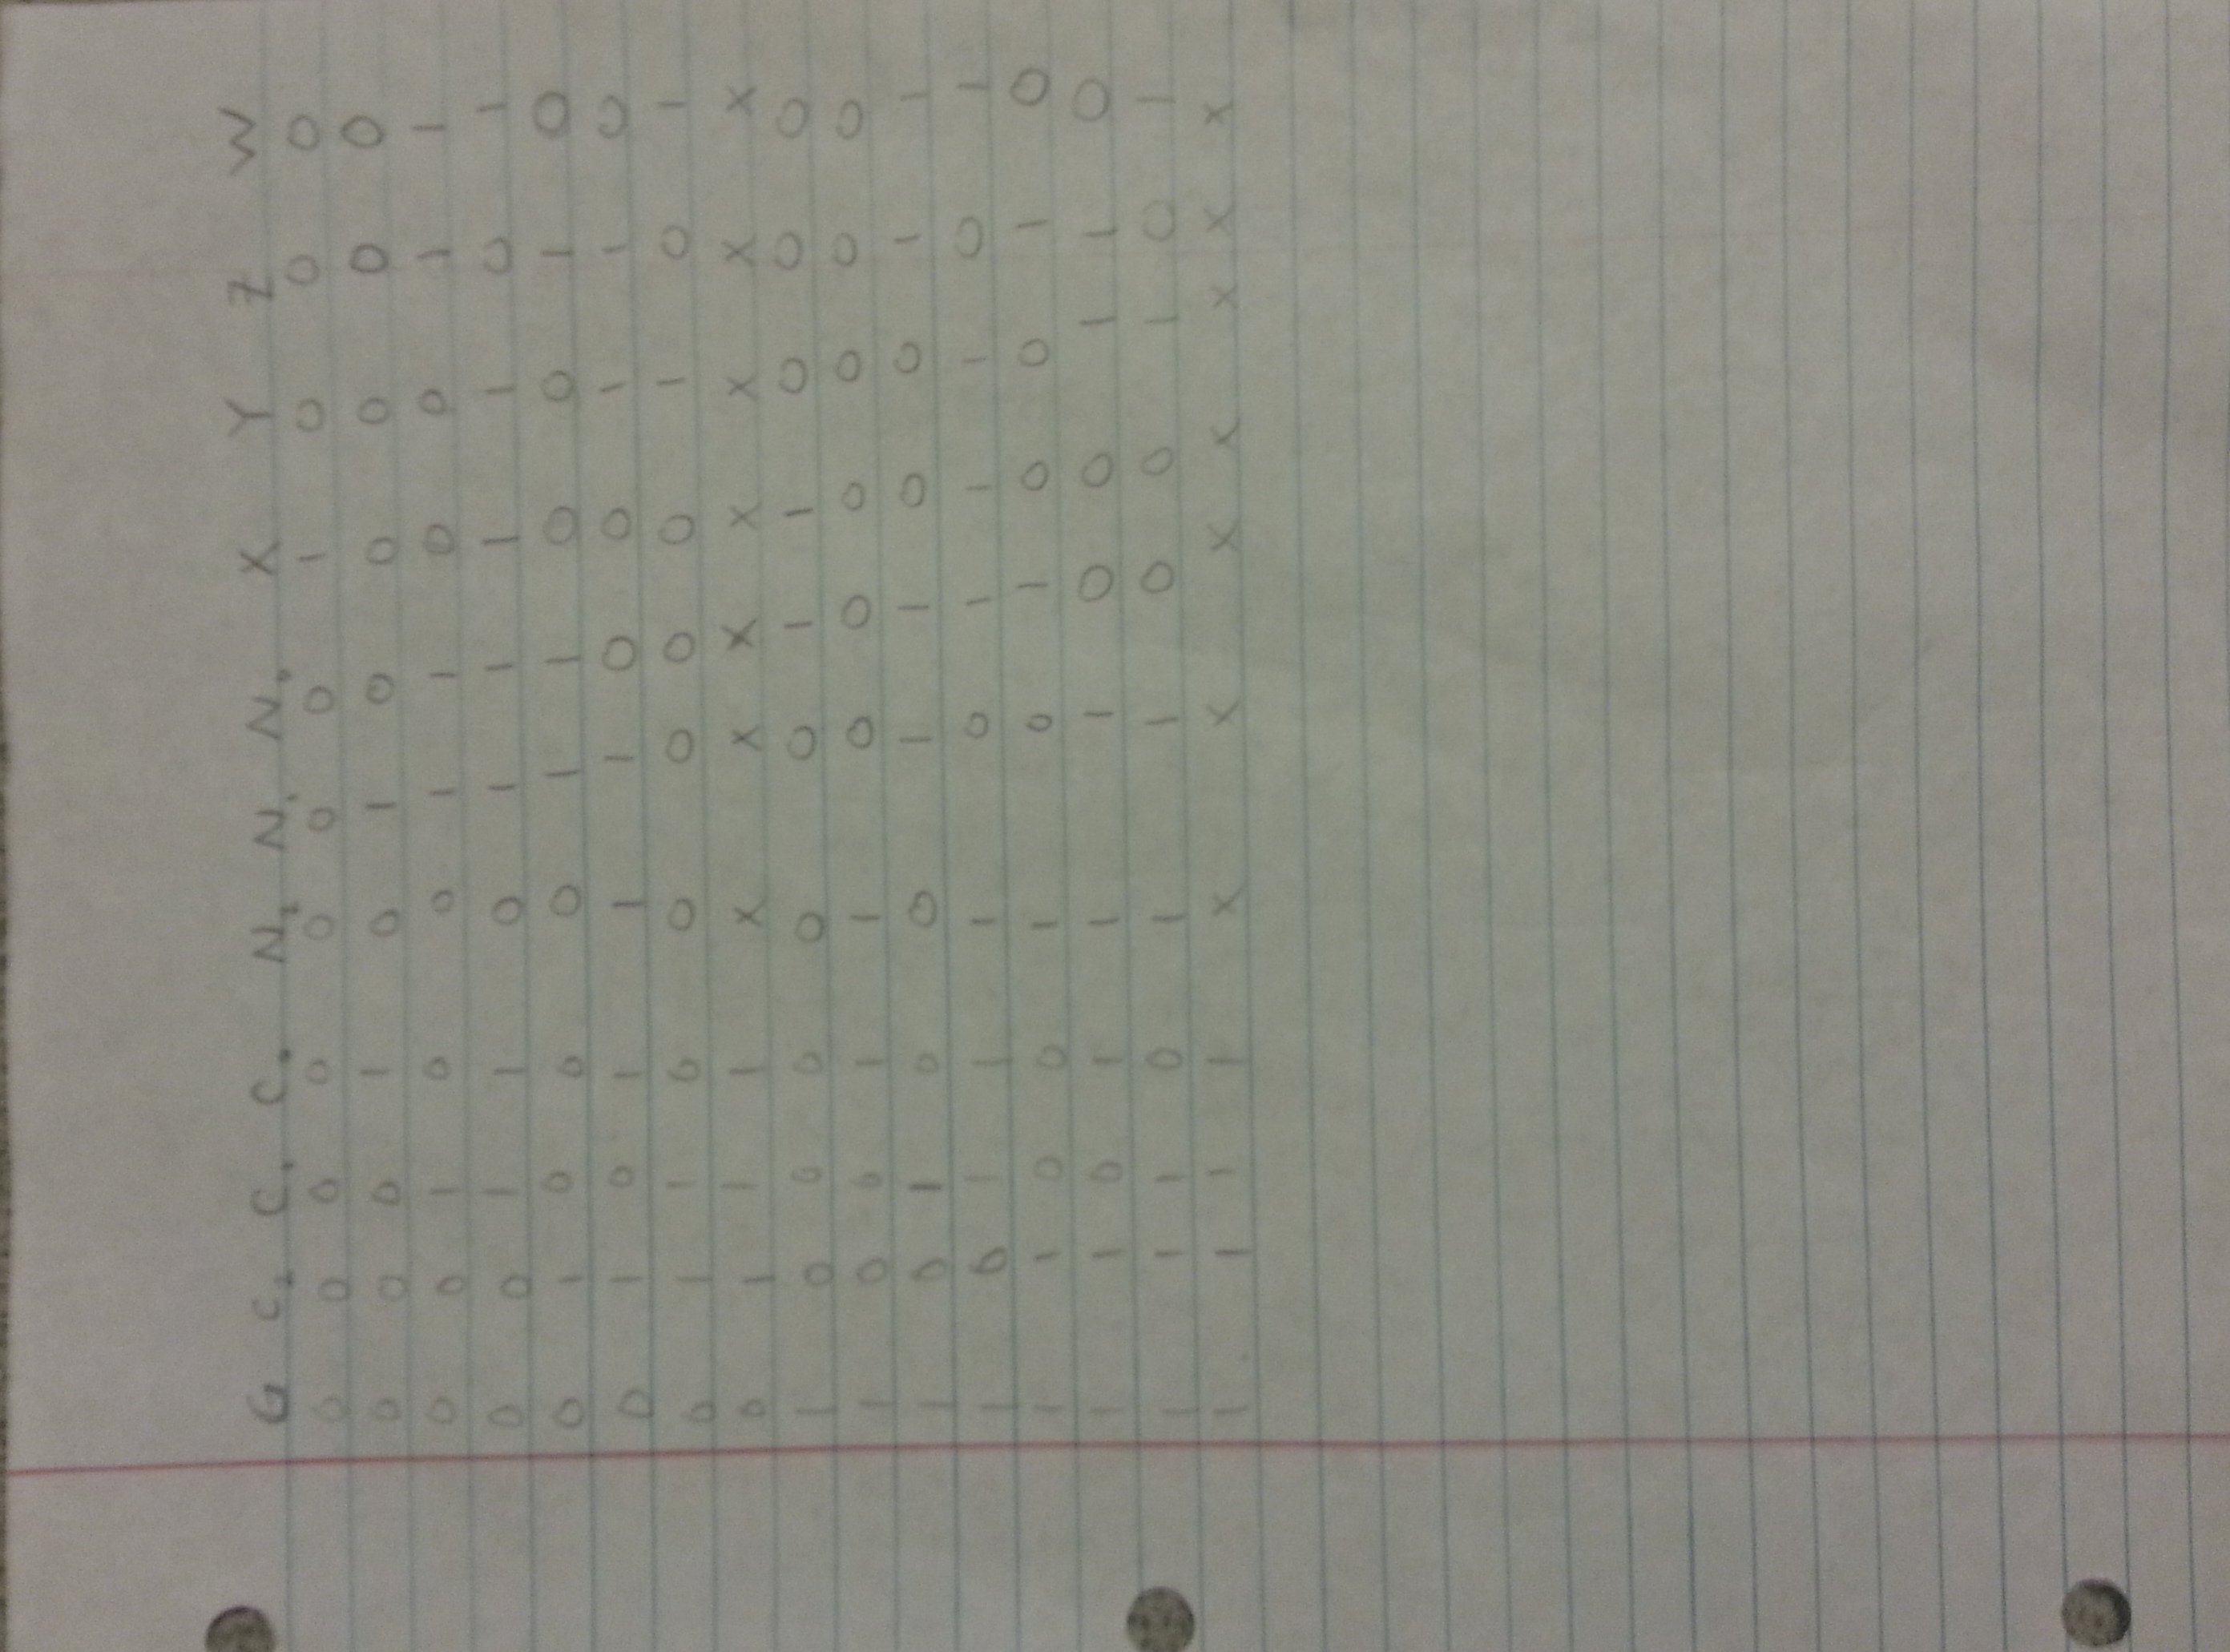 G C₂ C₁ C₀ N₂ N₁ N₀ X Y Z W
0 0 0 0 0 0 0 1 0 0 0
0 0 0 1 0 1 0 0 0 0 0
0 0 1 0 0 1 1 0 0 1 1
0 0 1 1 0 1 1 1 1 0 1
0 1 0 0 0 1 1 0 0 1 0
0 1 0 1 1 1 0 0 1 1 0
0 1 1 0 0 0 0 0 1 0 1
0 1 1 1 X X X X X X X
1 0 0 0 0 0 1 1 0 0 0
1 0 0 1 1 0 0 0 0 0 0
1 0 1 0 0 1 1 0 0 1 1
1 0 1 1 1 0 1 1 1 0 1
1 1 0 0 1 0 1 0 0 1 0
1 1 0 1 1 1 0 0 1 1 0
1 1 1 0 1 1 0 0 1 0 1
1 1 1 1 X X X X X X X